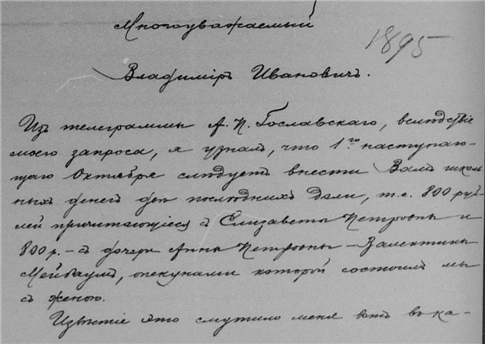 Многоуважаемый
1895
Владиміръ Ивановичъ.
Изъ телеграммы А. П. Гославскаго, вслѣдствіе
моего запроса, я узналъ, что 1го наступаю-
щаго Октября слѣдуетъ внести Вамъ
денегъ послѣднихъ дали, т.е. 800 руб-
лей причитающіеся съ Елизаветы Петровны и
800 р. – съ дочери Анны Петровны – Валентины
Мейбаумъ, опекунами которой состоимъ мы
съ женою.
Извѣстіе это смутило меня вотъ въ ка-